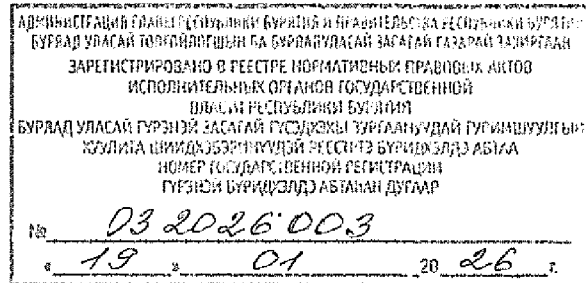 АДМИНИСТРАЦИЯ ГЛАВЫ РЕСПУБЛИКИ БУРЯТИЯ И ПРАВИТЕЛЬСТВА РЕСПУБЛИКИ БУРЯТИЯ
БУРЯАД УЛАСАЙ ТОЛГОЙЛОГШЫН БА БУРЯАД УЛАСАЙ ЗАСАГАЙ ГАЗАРАЙ ЗАХИРГААН
ЗАРЕГИСТРИРОВАНО В РЕЕСТРЕ НОРМАТИВНЫХ ПРАВОВЫХ АКТОВ
ИСПОЛНИТЕЛЬНЫХ ОРГАНОВ ГОСУДАРСТВЕННОЙ
ВЛАСТИ РЕСПУБЛИКИ БУРЯТИЯ
БУРЯАД УЛАСАЙ ГҮРЭНЭЙ ЗАСАГАЙ
РЕЕСТРТЭ БҮРИДХЭЛДЭ АБТАА
НОМЕР ГОСУДАРСТВЕННОЙ РЕГИСТРАЦИИ
ГҮРЭНЭЙ БҮРИДХЭЛДЭ АБТАҺАН ДУГААР
№ 032026003
« 19 » 01 20 26 г.